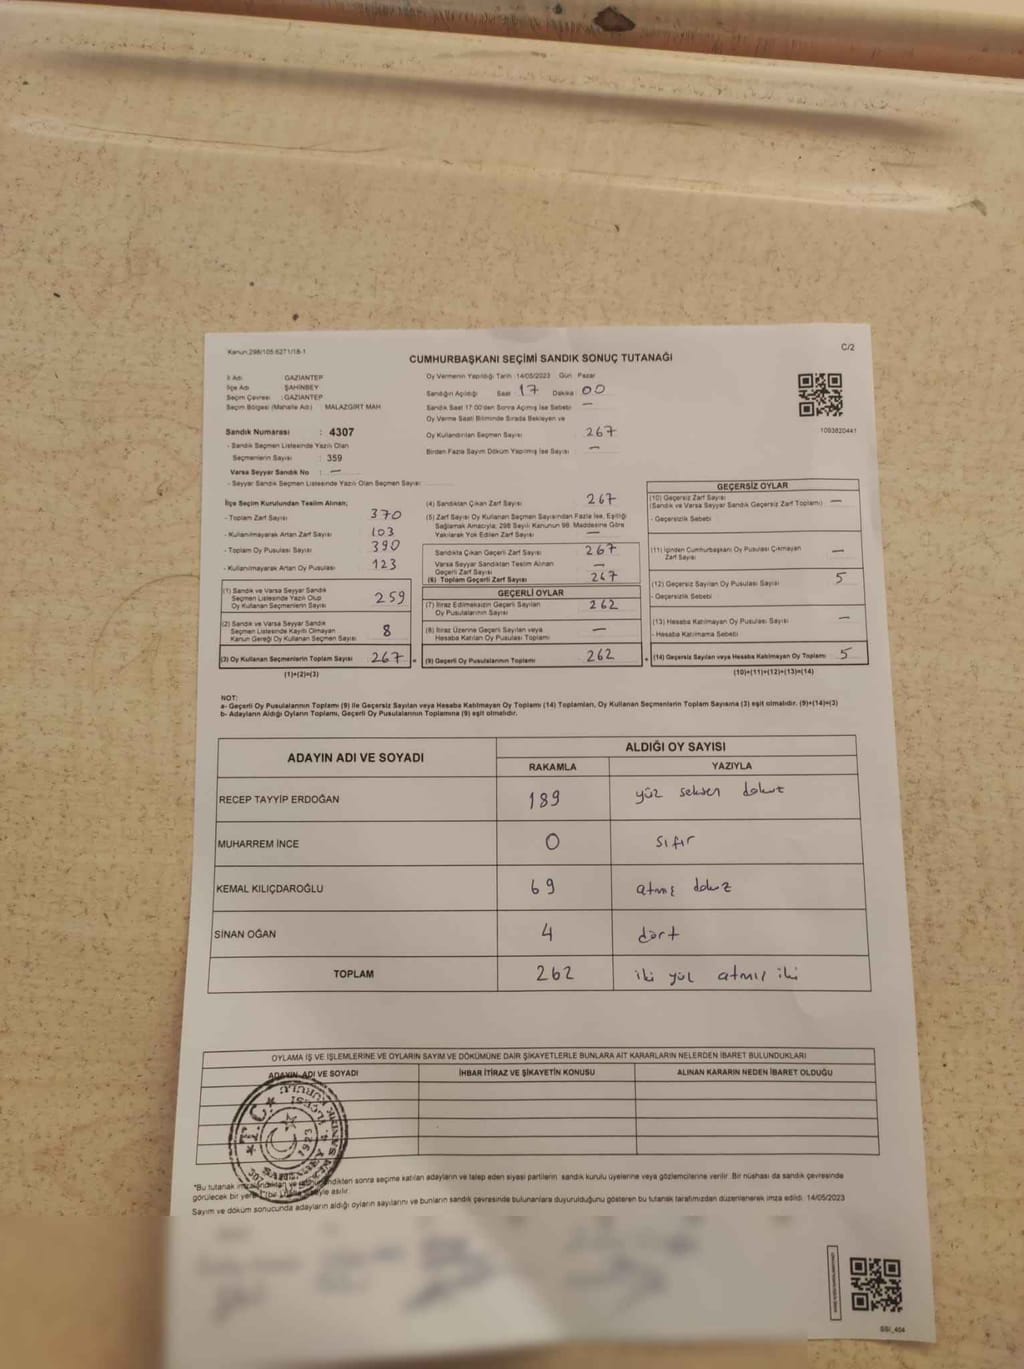 Kanun:298/105.6271/18-1
C/2
CUMHURBAŞKANI SEÇİMİ SANDIK SONUÇ TUTANAĞI
İl Adı : GAZİANTEP
İlçe Adı : ŞAHİNBEY
Seçim Çevresi : GAZİANTEP
Seçim Bölgesi (Mahalle Adı) : MALAZGİRT MAH
Sandık Numarası : 4307
- Sandık Seçmen Listesinde Yazılı Olan
Seçmenlerin Sayısı : 359
Varsa Seyyar Sandık No : —
- Seyyar Sandık Seçmen Listesinde Yazılı Olan Seçmen Sayısı
Oy Vermenin Yapıldığı Tarih :14/05/2023 Gün : Pazar
Sandığın Açıldığı Saat 17 Dakika 00
Sandık Saat 17:00'den Sonra Açılmış İse Sebebi —
Oy Verme Saati Bitiminde Sırada Bekleyen ve
Oy Kullandırılan Seçmen Sayısı : 267
Birden Fazla Sayım Döküm Yapılmış İse Sayısı —
1093820441
İlçe Seçim Kurulundan Teslim Alınan;
- Toplam Zarf Sayısı 370
- Kullanılmayarak Artan Zarf Sayısı 103
- Toplam Oy Pusulası Sayısı 390
- Kullanılmayarak Artan Oy Pusulası 123
(1) Sandık ve Varsa Seyyar Sandık
Seçmen Listesinde Yazılı Olup
Oy Kullanan Seçmenlerin Sayısı 259
(2) Sandık ve Varsa Seyyar Sandık
Seçmen Listesinde Kayıtlı Olmayan
Kanun Gereği Oy Kullanan Seçmen Sayısı 8
(3) Oy Kullanan Seçmenlerin Toplam Sayısı 267
(1)+(2)=(3)
(4) Sandıktan Çıkan Zarf Sayısı 267
(5) Zarf Sayısı Oy Kullanan Seçmen Sayısından Fazla İse, Eşitliği
Sağlamak Amacıyla; 298 Sayılı Kanunun 98. Maddesine Göre
Yakılarak Yok Edilen Zarf Sayısı —
Sandıkta Çıkan Geçerli Zarf Sayısı 267
Varsa Seyyar Sandıktan Teslim Alınan
Geçerli Zarf Sayısı —
(6) Toplam Geçerli Zarf Sayısı 267
GEÇERLİ OYLAR
(7) İtiraz Edilmeksizin Geçerli Sayılan
Oy Pusulalarının Sayısı 262
(8) İtiraz Üzerine Geçerli Sayılan veya
Hesaba Katılan Oy Pusulası Toplamı —
(9) Geçerli Oy Pusulalarının Toplamı 262
GEÇERSİZ OYLAR
(10) Geçersiz Zarf Sayısı
(Sandık ve Varsa Seyyar Sandık Geçersiz Zarf Toplamı) —
- Geçersizlik Sebebi
(11) İçinden Cumhurbaşkanı Oy Pusulası Çıkmayan
Zarf Sayısı —
(12) Geçersiz Sayılan Oy Pusulası Sayısı 5
- Geçersizlik Sebebi
(13) Hesaba Katılmayan Oy Pusulası Sayısı —
- Hesaba Katılmama Sebebi
(14) Geçersiz Sayılan veya Hesaba Katılmayan Oy Toplamı 5
(10)+(11)+(12)+(13)=(14)
NOT:
a- Geçerli Oy Pusulalarının Toplamı (9) ile Geçersiz Sayılan veya Hesaba Katılmayan Oy Toplamı (14) Toplamları, Oy Kullanan Seçmenlerin Toplam Sayısına (3) eşit olmalıdır. (9)+(14)=(3)
b- Adayların Aldığı Oyların Toplamı, Geçerli Oy Pusulalarının Toplamına (9) eşit olmalıdır.
ADAYIN ADI VE SOYADI
ALDIĞI OY SAYISI
RAKAMLA YAZIYLA
RECEP TAYYİP ERDOĞAN 189 yüz seksen dokuz
MUHARREM İNCE 0 sıfır
KEMAL KILIÇDAROĞLU 69 atmış dokuz
SİNAN OĞAN 4 dört
TOPLAM 262 iki yüz atmış iki
OYLAMA İŞ VE İŞLEMLERİNE VE OYLARIN SAYIM VE DÖKÜMÜNE DAİR ŞİKAYETLERLE BUNLARA AİT KARARLARIN NELERDEN İBARET BULUNDUKLARI
ADAYIN ADI VE SOYADI İHBAR İTİRAZ VE ŞİKAYETİN KONUSU ALINAN KARARIN NEDEN İBARET OLDUĞU
T.C.
1923
*Bu tutanak sonra seçime katılan adayların ve talep eden siyasi partilerin sandık kurulu üyelerine veya gözlemcilerine verilir. Bir nüshası da sandık çevresinde
görülecek bir yere asılır.
Sayım ve döküm sonucunda adayların aldığı oyların sayılarını ve bunların sandık çevresinde bulunanlara duyurulduğunu gösteren bu tutanak tarafımızdan düzenlenerek imza edildi. 14/05/2023
SSI_404